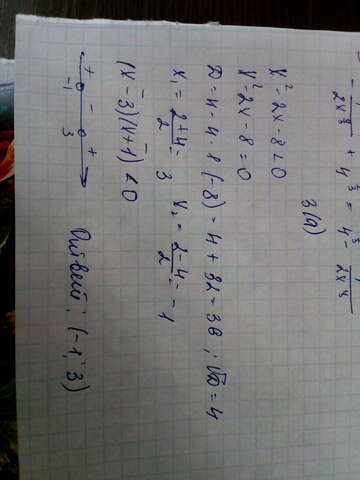 - 2x⁸ + 4³ = 4³ - 2x⁸
3(а)
x² - 2x - 8 < 0
x² - 2x - 8 = 0
D = 4 - 4 · 8 (-8) = 4 + 32 = 36 ; √D = 4
x₁ = (2+4)/2 = 3 x₂ = (2-4)/2 = -1
(x - 3)(x + 1) < 0
+ - +
-1 3
Ответ: (-1; 3)